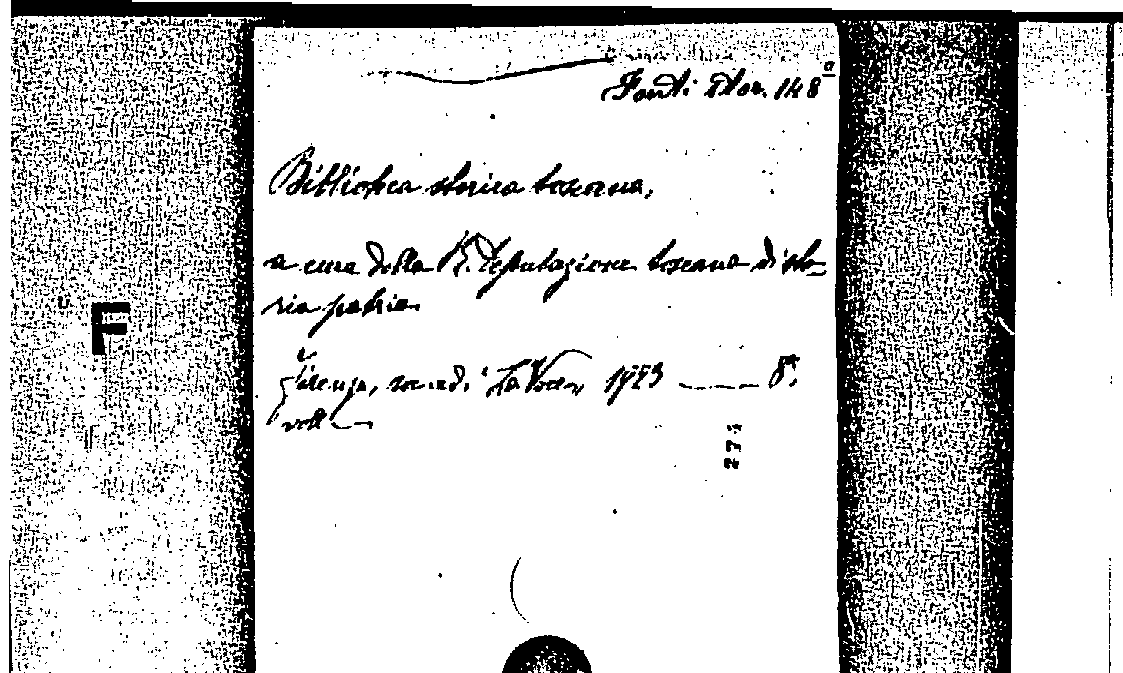 Fonti stor. 148a
Biblioteca storica toscana,
a cura della R. Deputazione toscana di sto-
ria patria.
F
Firenze, soc. ed. "La Voce", 1923 —— 8°.
voll. —